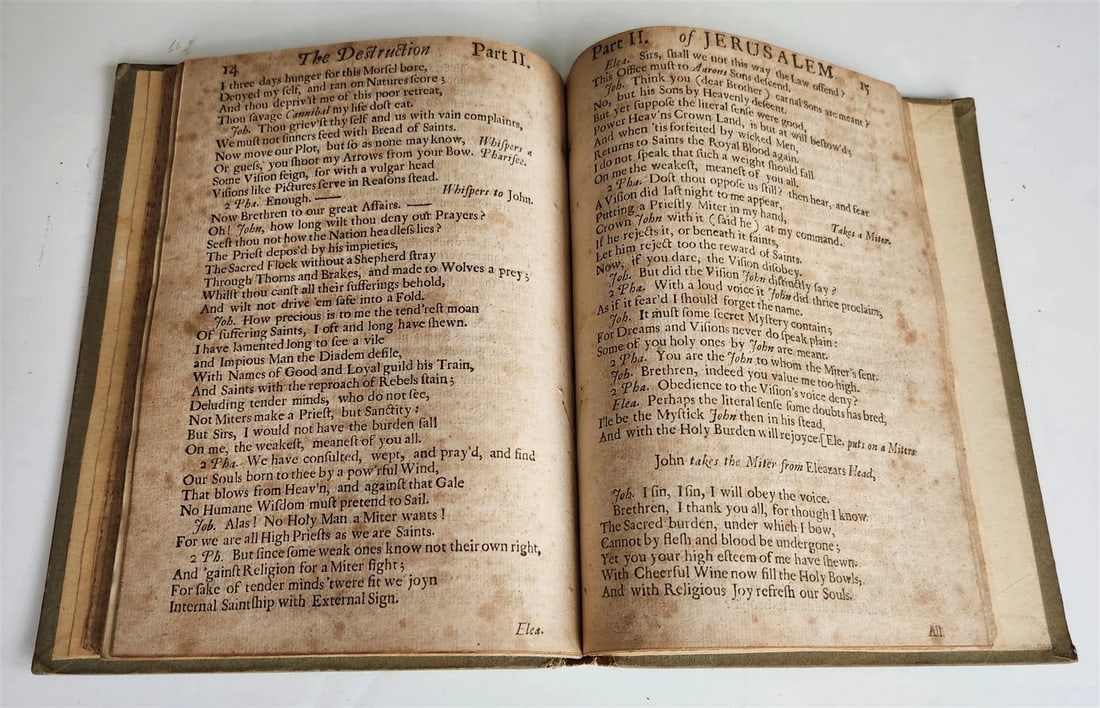 14 The Destruction Part II.
I three days hunger for this Morsel bore,
Denyed my self, and ran on Natures score;
And thou depriv'st me of this poor retreat,
Thou savage Cannibal my life dost eat.
Joh. Thou griev'st thy self and us with vain complaints,
We must not sinners feed with Bread of Saints.
Now move our Plot, but so as none may know, Whispers a
Or guess, you shoot my Arrows from your Bow. Pharisee.
Some Vision feign, for with a vulgar head
Visions like Pictures serve in Reasons stead.
Whispers to John.
2 Pha. Enough. ——
Now Brethren to our great Affairs. ——
Oh! John, how long wilt thou deny our Prayers?
Seest thou not how the Nation headless lies?
The Priest depos'd by his impieties,
The Sacred Flock without a Shepherd stray
Through Thorns and Brakes, and made to Wolves a prey;
Whilst thou canst all their sufferings behold,
And wilt not drive 'em safe into a Fold.
Joh. How precious is to me the tend'rest moan
Of suffering Saints, I oft and long have shewn.
I have lamented long to see a vile
and Impious Man the Diadem defile,
With Names of Good and Loyal guild his Train,
And Saints with the reproach of Rebels stain;
Deluding tender minds, who do not see,
Not Miters make a Priest, but Sanctity:
But Sirs, I would not have the burden fall
On me, the weakest, meanest of you all.
2 Pha. We have consulted, wept, and pray'd, and find
Our Souls born to thee by a pow'rful Wind,
That blows from Heav'n, and against that Gale
No Humane Wisdom must pretend to Sail.
Joh. Alas! No Holy Man a Miter wants!
For we are all High Priests as we are Saints.
2 Ph. But since some weak ones know not their own right,
And 'gainst Religion for a Miter fight;
For sake of tender minds 'twere fit we joyn
Internal Saintship with External Sign.
Elea.
Part II. of JERUSALEM 15
Elea. Sirs, shall we not this way the Law offend?
This Office must to Aarons Sons descend.
Joh. Think you (dear Brother) carnal Sons are meant?
No, but his Sons by Heavenly descent.
But yet suppose the literal sense were good,
Power Heav'ns Crown Land, is but at will bestow'd;
And when 'tis forfeited by wicked Men,
Returns to Saints the Royal Blood again.
I do not speak that such a weight should fall
On me the weakest, meanest of you all.
2 Pha. Dost thou oppose us still? then hear, and fear
A Vision did last night to me appear,
Putting a Priestly Miter in my hand, Takes a Miter.
Crown John with it (said he) at my command.
If he rejects it, or beneath it faints,
Let him reject too the reward of Saints.
Now, if you dare, the Vision disobey.
Joh. But did the Vision John distinctly say?
2 Pha. With a loud voice it John did thrice proclaim,
As if it fear'd I should forget the name.
Joh. It must some secret Mystery contain;
For Dreams and Visions never do speak plain:
Some of you holy ones by John are meant.
2 Pha. You are the John to whom the Miter's sent.
Joh. Brethren, indeed you value me too high.
2 Pha. Obedience to the Vision's voice deny?
Elea. Perhaps the literal sense some doubts has bred,
I'le be the Mystick John then in his stead,
And with the Holy Burden will rejoyce. [Ele. puts on a Miter.
John takes the Miter from Eleazars Head,
Joh. I sin, I sin, I will obey the voice.
Brethren, I thank you all, for though I know
The Sacred burden, under which I bow,
Cannot by flesh and blood be undergone;
Yet you your high esteem of me have shewn.
With Cheerful Wine now fill the Holy Bowls,
And with Religious Joy refresh our Souls.
All